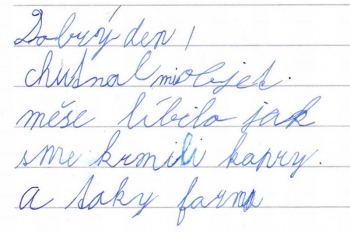 Dobrý den,
chutnal mi objet.
měse líbilo jak
sme krmili kapry.
a taky farma